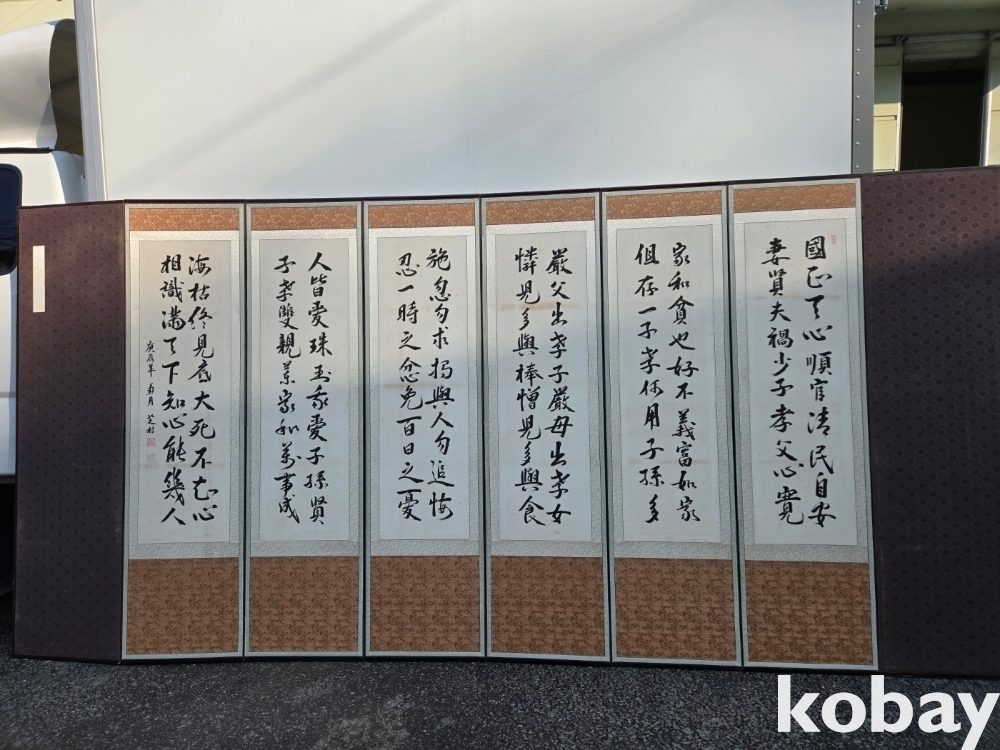 國正天心順官清民自安
妻賢夫禍少子孝父心寬
家和貧也好不義富如家
但存一子孝何用子孫多
嚴父出孝子嚴母出孝女
憐兒多與棒憎兒多與食
施恩勿求报與人勿追悔
忍一時之忿免百日之憂
人皆愛珠玉我愛子孫賢
子孝雙親業家和萬事成
海枯終見底人死不知心
相識滿天下知心能幾人
庚辰年 菊月 芝村
kobay